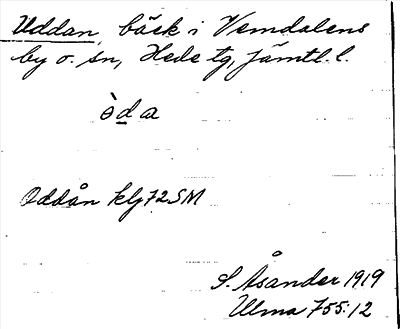 Uddan, bäck i Vemdalens
by o. sn, Hede tg, Jämtl. l.
òda
Oddån klj 72 SM
S. Åsander 1919
Ulma 755:12